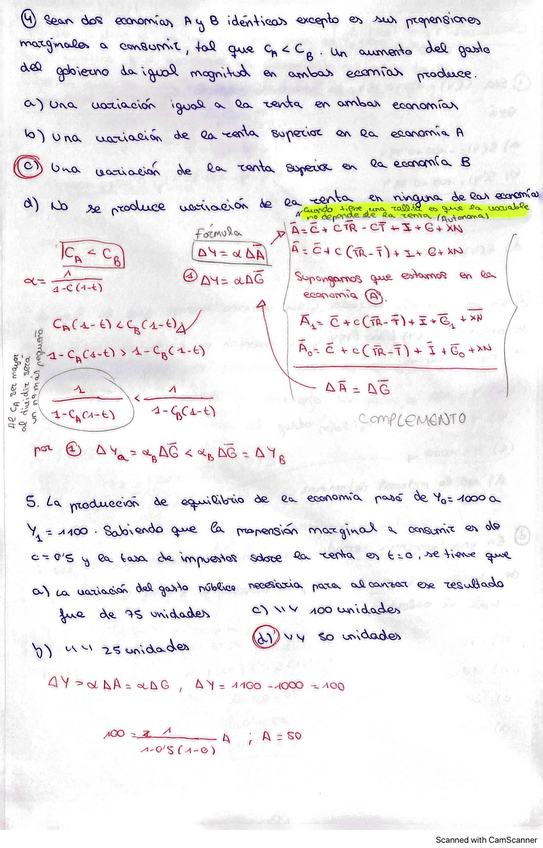 ④ Sean dos economías A y B idénticas excepto es sus propensiones
marginales a consumir, tal que C_A < C_B. Un aumento del gasto
del gobierno da igual magnitud en ambas ecomías produce.
a) Una variación igual a la renta en ambas economías
b) Una variación de la renta superior en la economía A
c) Una variación de la renta superior en la economía B
d) No se produce variación de la renta en ninguna de las economías
* Cuando tiene una rallita es que la variable
no depende de la renta (Autónoma)
C_A < C_B
α = 1 / 1-c(1-t)
Fórmula
ΔY = α ΔĀ
① ΔY = α ΔḠ
Ā = C̄ + cTR̄ - cT̄ + I + G + XN
Ā = C̄ + c (TR̄ - T̄) + I + G + XN
Supongamos que estamos en la
economía Ⓐ.
Ā₁ = C̄ + c (TR̄ - T̄) + Ī + Ḡ₁ + XN̄
Ā₀ = C̄ + c (TR̄ - T̄) + Ī + Ḡ₀ + XN
ΔĀ = ΔḠ
COMPLEMENTO
C_A (1-t) < C_B (1-t)
1 - C_A (1-t) > 1 - C_B (1-t)
1 / 1-C_A(1-t) < 1 / 1-C_B(1-t)
Al C_A ser mayor
al dividir será
un nº más pequeño
por ① ΔY_a = α_B ΔḠ < α_B ΔḠ = ΔY_B
5. La producción de equilibrio de la economía pasó de Y₀ = 1000 a
Y₁ = 1100. Sabiendo que la propensión marginal a consumir es de
c = 0'5 y la tasa de impuestos sobre la renta es t = 0, se tiene que
a) La variación del gasto público necesaria para alcanzar ese resultado
fue de 75 unidades c) 100 unidades
b) 25 unidades d) 50 unidades
ΔY = α ΔA = α ΔG , ΔY = 1100 - 1000 = 100
100 = 1 / 1-0'5(1-0) A ; A = 50
Scanned with CamScanner